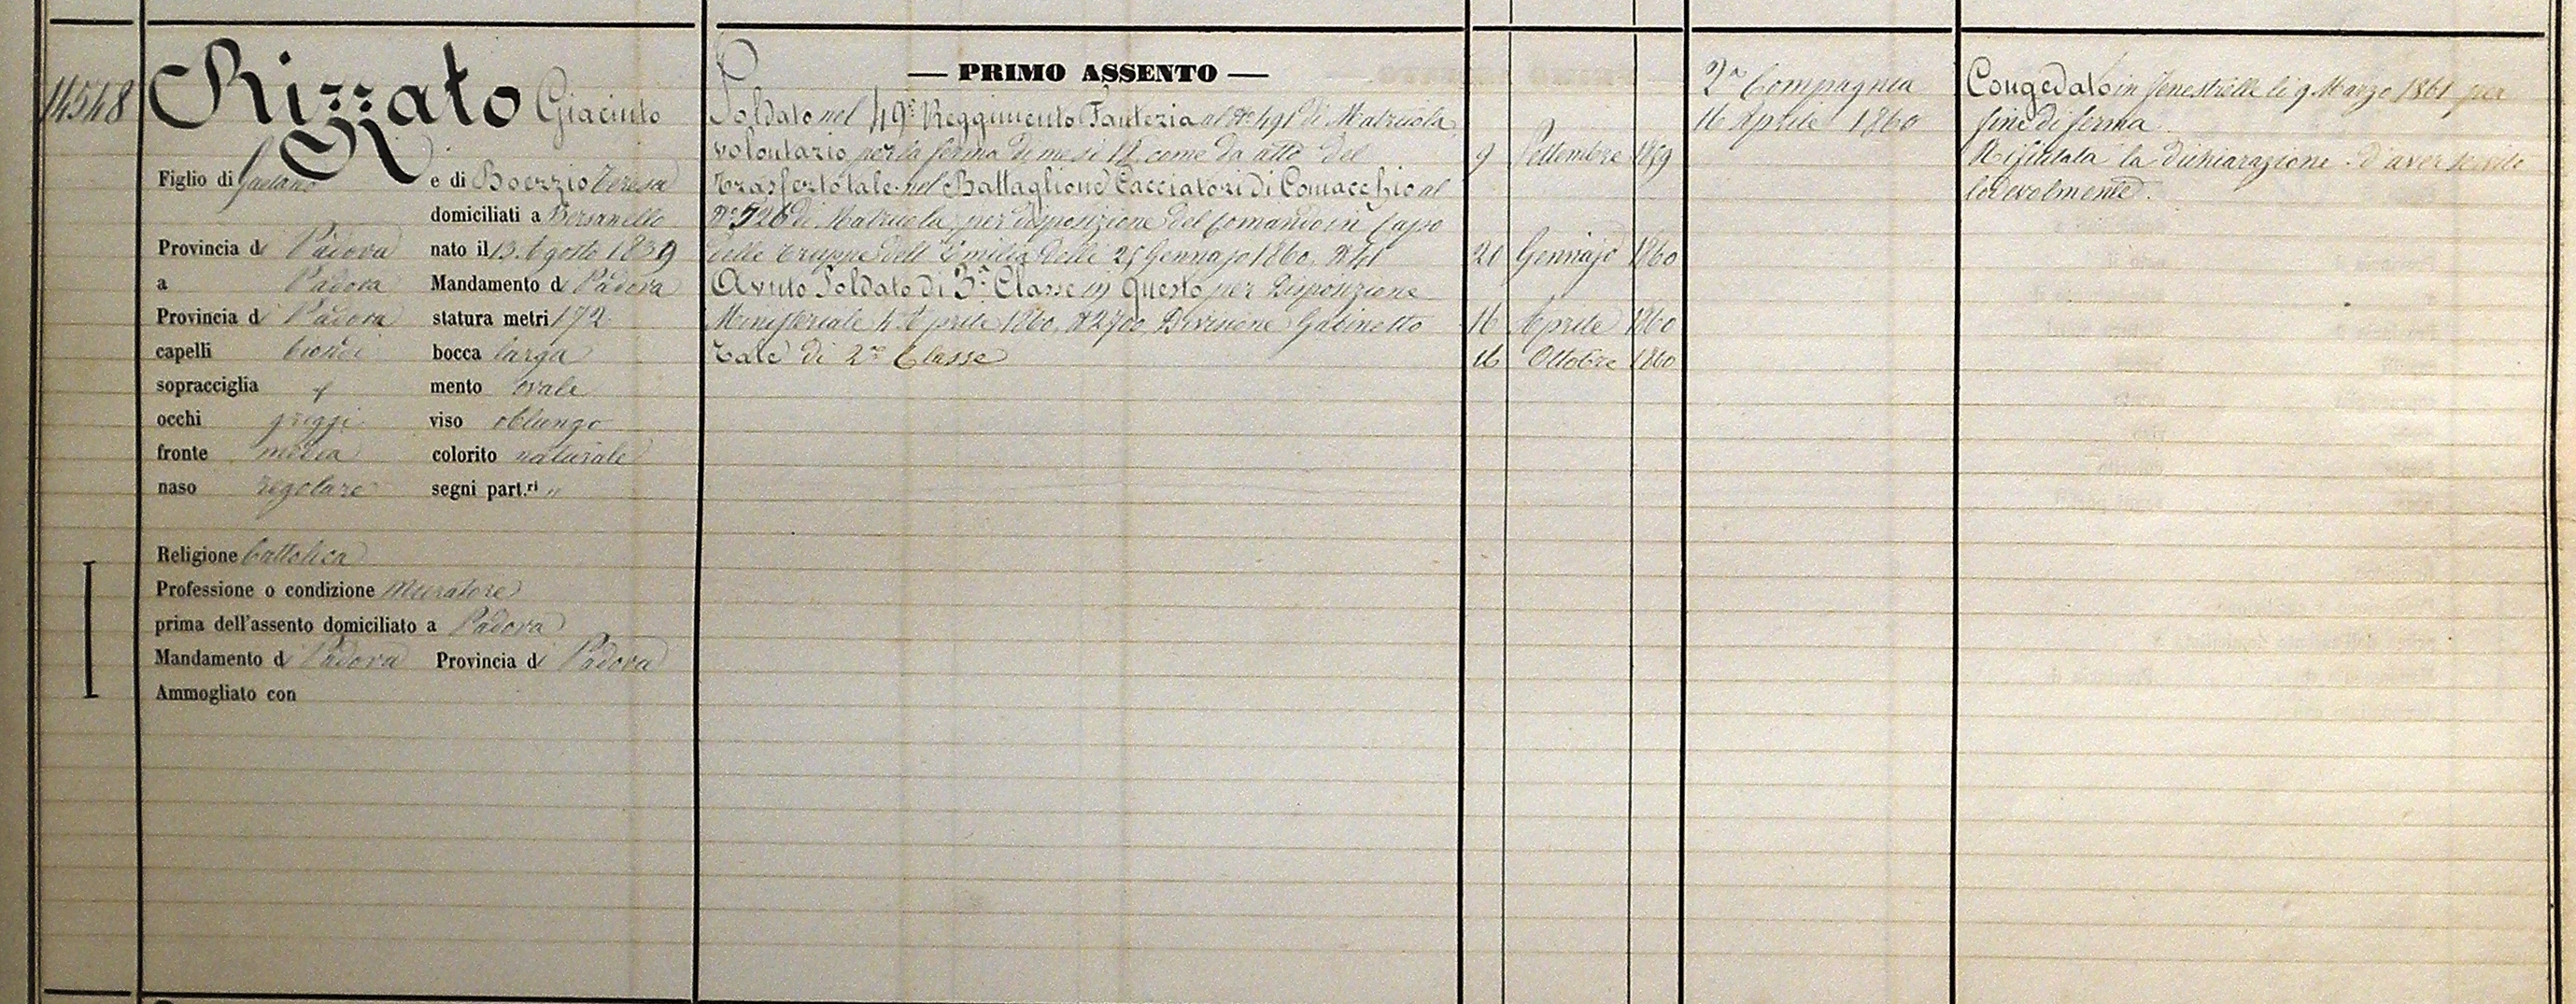 14548
Rizzato Giacinto
Figlio di Gaetano e di Boezzio Teresa
domiciliati a Bersanello
Provincia di Padova nato il 13 Agosto 1839
a Padova Mandamento di Padova
Provincia di Padova statura metri 172
capelli biondi bocca larga
sopracciglia mento ovale
occhi griggi viso oblungo
fronte media colorito naturale
naso regolare segni part.ri "
Religione Cattolica
Professione o condizione Muratore
prima dell'assento domiciliato a Padova
Mandamento di Padova Provincia di Padova
Ammogliato con
— PRIMO ASSENTO —
Soldato nel 49° Reggimento Fanteria al N° 491 di Matricola
volontario per la ferma di mesi 18 come da atto del 9 Settembre 1859
Trasferto tale nel Battaglione Cacciatori di Comacchio al
N° 526 di Matricola, per disposizione del Comando in Capo
delle truppe dell'Emilia delli 25 Gennajo 1860, N° 20 Gennajo 1860
Avuto Soldato di 3a Classe in questo per Disposizione
Ministeriale 4 Aprile 1860, N 2700, Divisione Gabinetto 16 Aprile 1860
Tale di 2a Classe 16 Ottobre 1860
2a Compagnia
16 Aprile 1860
Congedato in Fenestrelle li 9 Marzo 1861 per
fine di ferma.
Rifiutata la dichiarazione d'aver servito
lodevolmente.